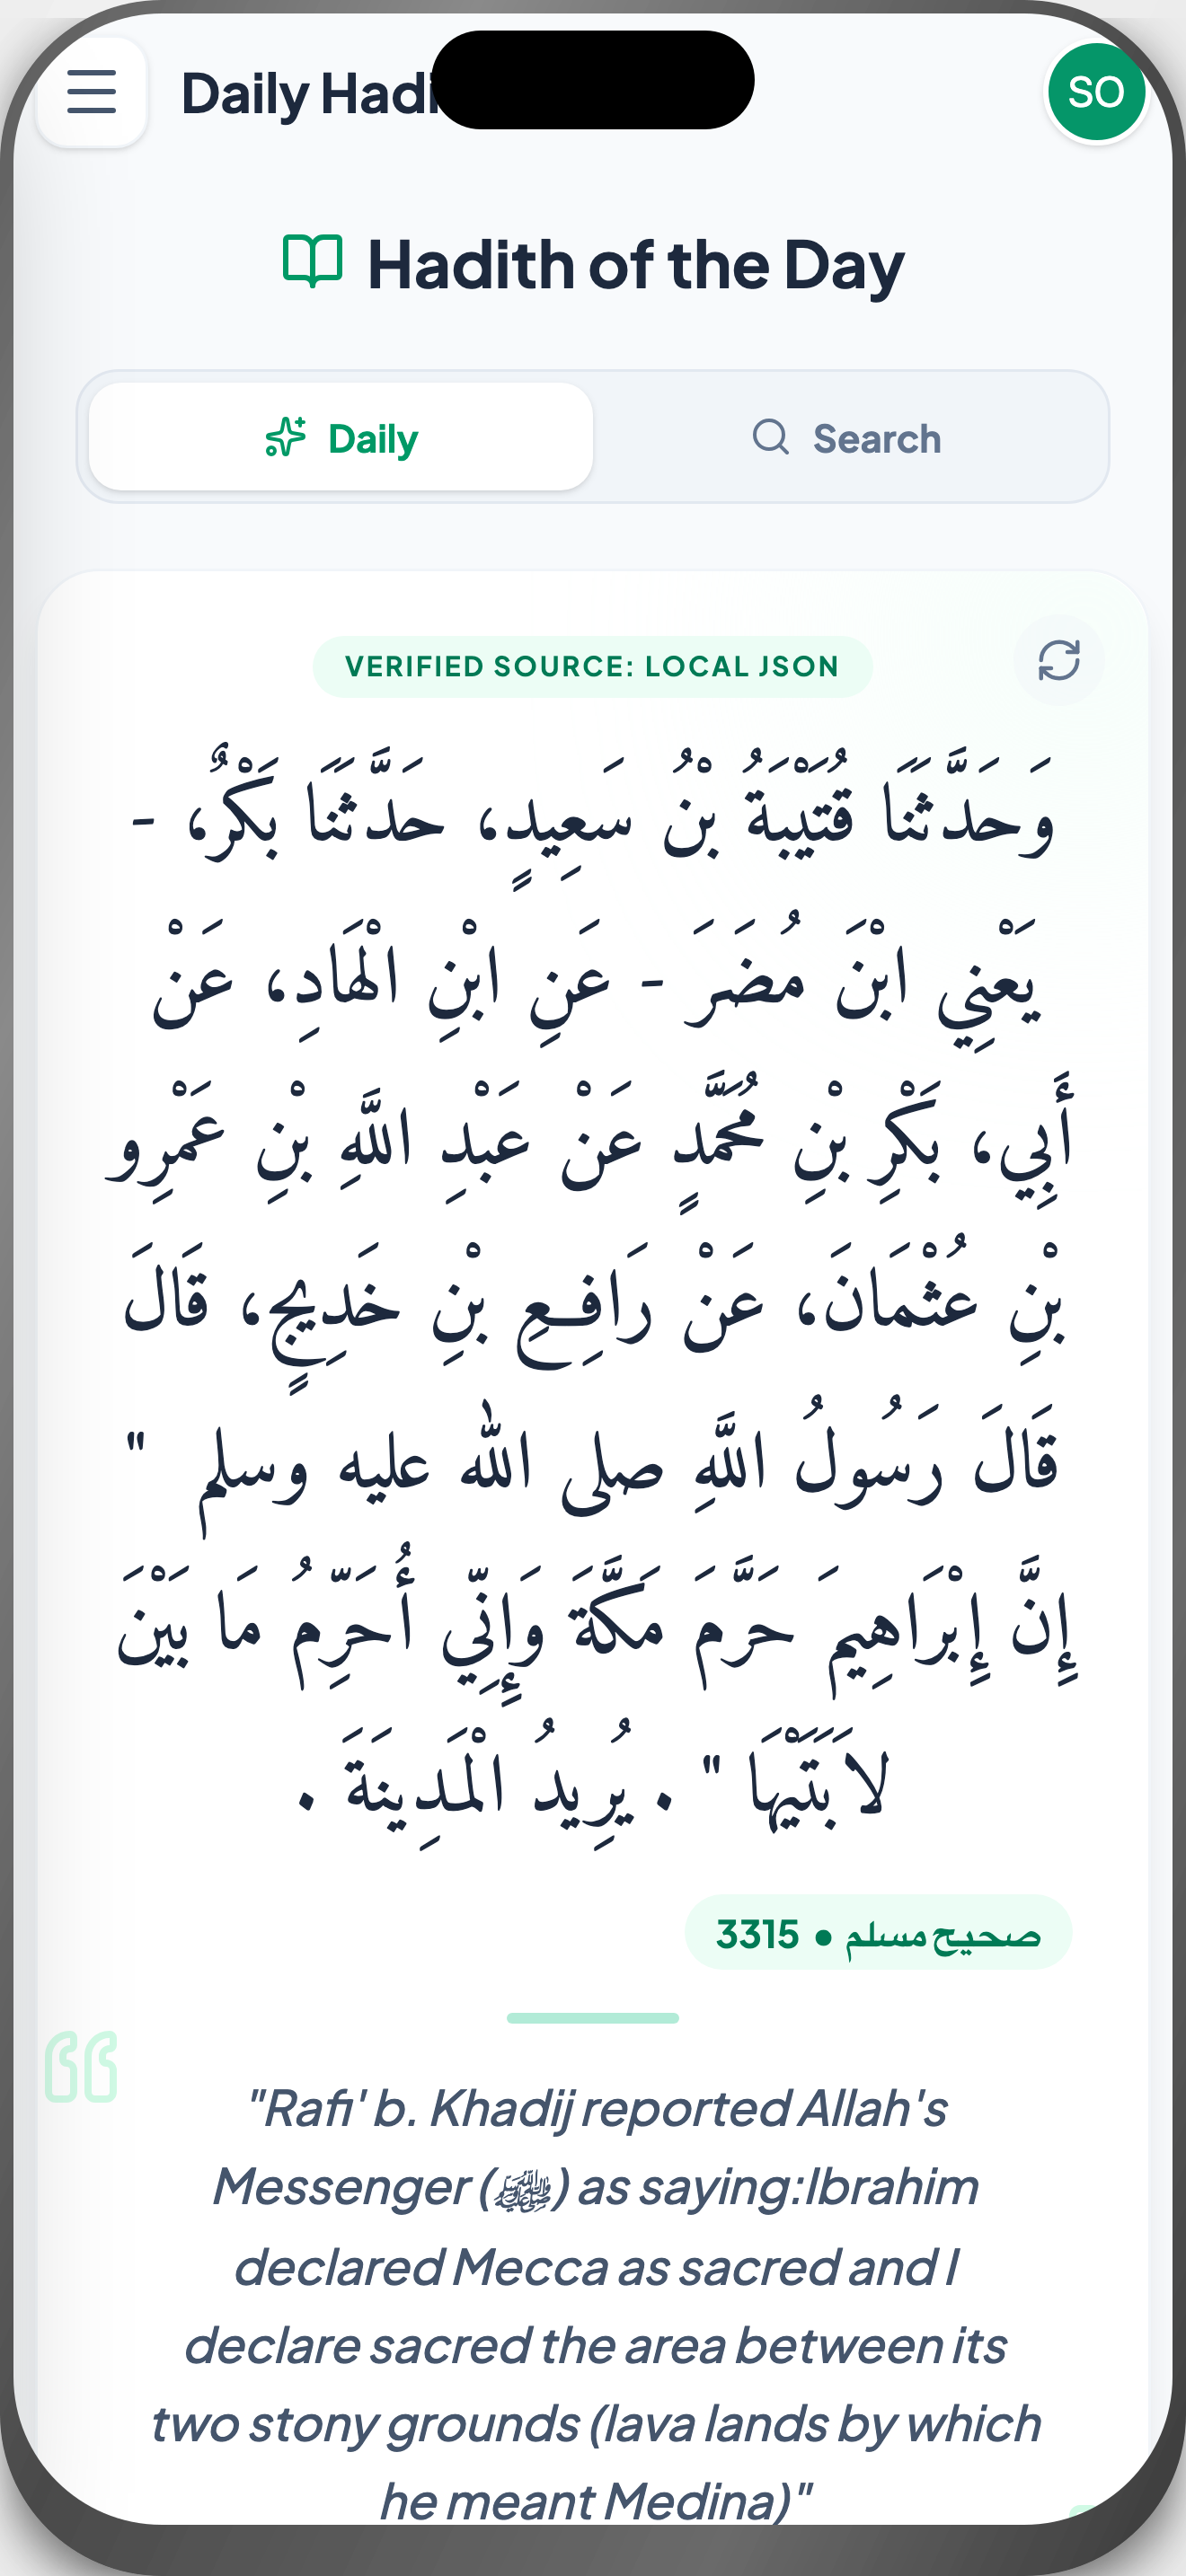 Daily Hadi
SO
Hadith of the Day
Daily
Search
VERIFIED SOURCE: LOCAL JSON
وَحَدَّثَنَا قُتَيْبَةُ بْنُ سَعِيدٍ، حَدَّثَنَا بَكْرٌ، -
يَعْنِي ابْنَ مُضَرَ - عَنِ ابْنِ الْهَادِ، عَنْ
أَبِي، بَكْرِ بْنِ مُحَمَّدٍ عَنْ عَبْدِ اللَّهِ بْنِ عَمْرِو
بْنِ عُثْمَانَ، عَنْ رَافِعِ بْنِ خَدِيجٍ، قَالَ
قَالَ رَسُولُ اللَّهِ صلى الله عليه وسلم "
إِنَّ إِبْرَاهِيمَ حَرَّمَ مَكَّةَ وَإِنِّي أُحَرِّمُ مَا بَيْنَ
لاَبَتَيْهَا " . يُرِيدُ الْمَدِينَةَ .
صحيح مسلم • 3315
"Rafi' b. Khadij reported Allah's
Messenger (ﷺ) as saying:Ibrahim
declared Mecca as sacred and I
declare sacred the area between its
two stony grounds (lava lands by which
he meant Medina)"